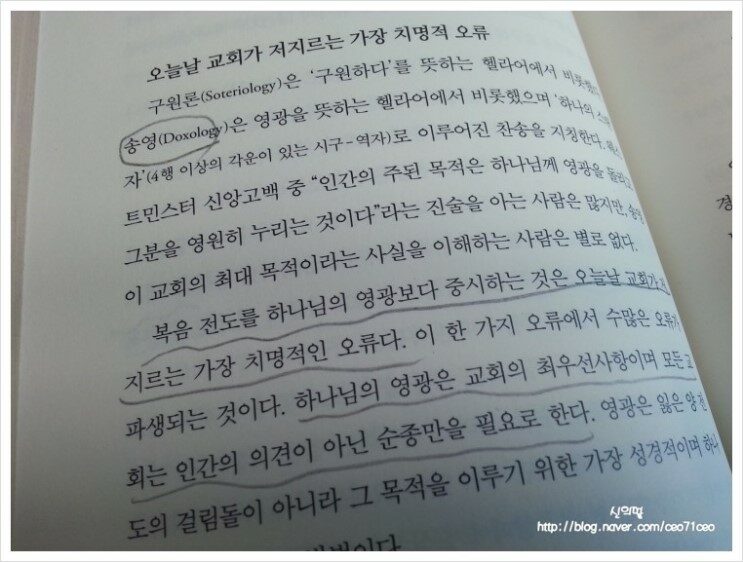 오늘날 교회가 저지르는 가장 치명적 오류
구원론(Soteriology)은 '구원하다'를 뜻하는 헬라어에서 비롯했
송영(Doxology)은 영광을 뜻하는 헬라어에서 비롯했으며 '하나의
자'(4행 이상의 각운이 있는 시구-역자)로 이루어진 찬송을 지칭한다.
트민스터 신앙고백 중 "인간의 주된 목적은 하나님께 영광을
그분을 영원히 누리는 것이다"라는 진술을 아는 사람은 많지만, 송영
이 교회의 최대 목적이라는 사실을 이해하는 사람은 별로 없다.
복음 전도를 하나님의 영광보다 중시하는 것은 오늘날 교회가
지르는 가장 치명적인 오류다. 이 한 가지 오류에서 수많은 오류가
파생되는 것이다. 하나님의 영광은 교회의 최우선사항이며 모든 교
회는 인간의 의견이 아닌 순종만을 필요로 한다. 영광은 잃은 양 전
도의 걸림돌이 아니라 그 목적을 이루기 위한 가장 성경적이며 하나
경
http://blog.naver.com/ceo71ceo